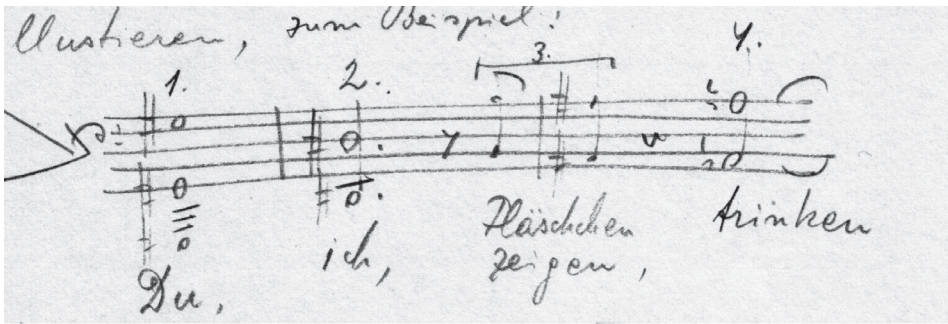 llustieren, zum Beispiel:
1. 2. 3. 4.
Du, ich, Fläschchen trinken
zeigen,